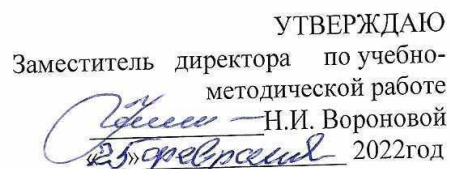 УТВЕРЖДАЮ
Заместитель директора по учебно-
методической работе
Н.И. Вороновой
«25» февраля 2022год